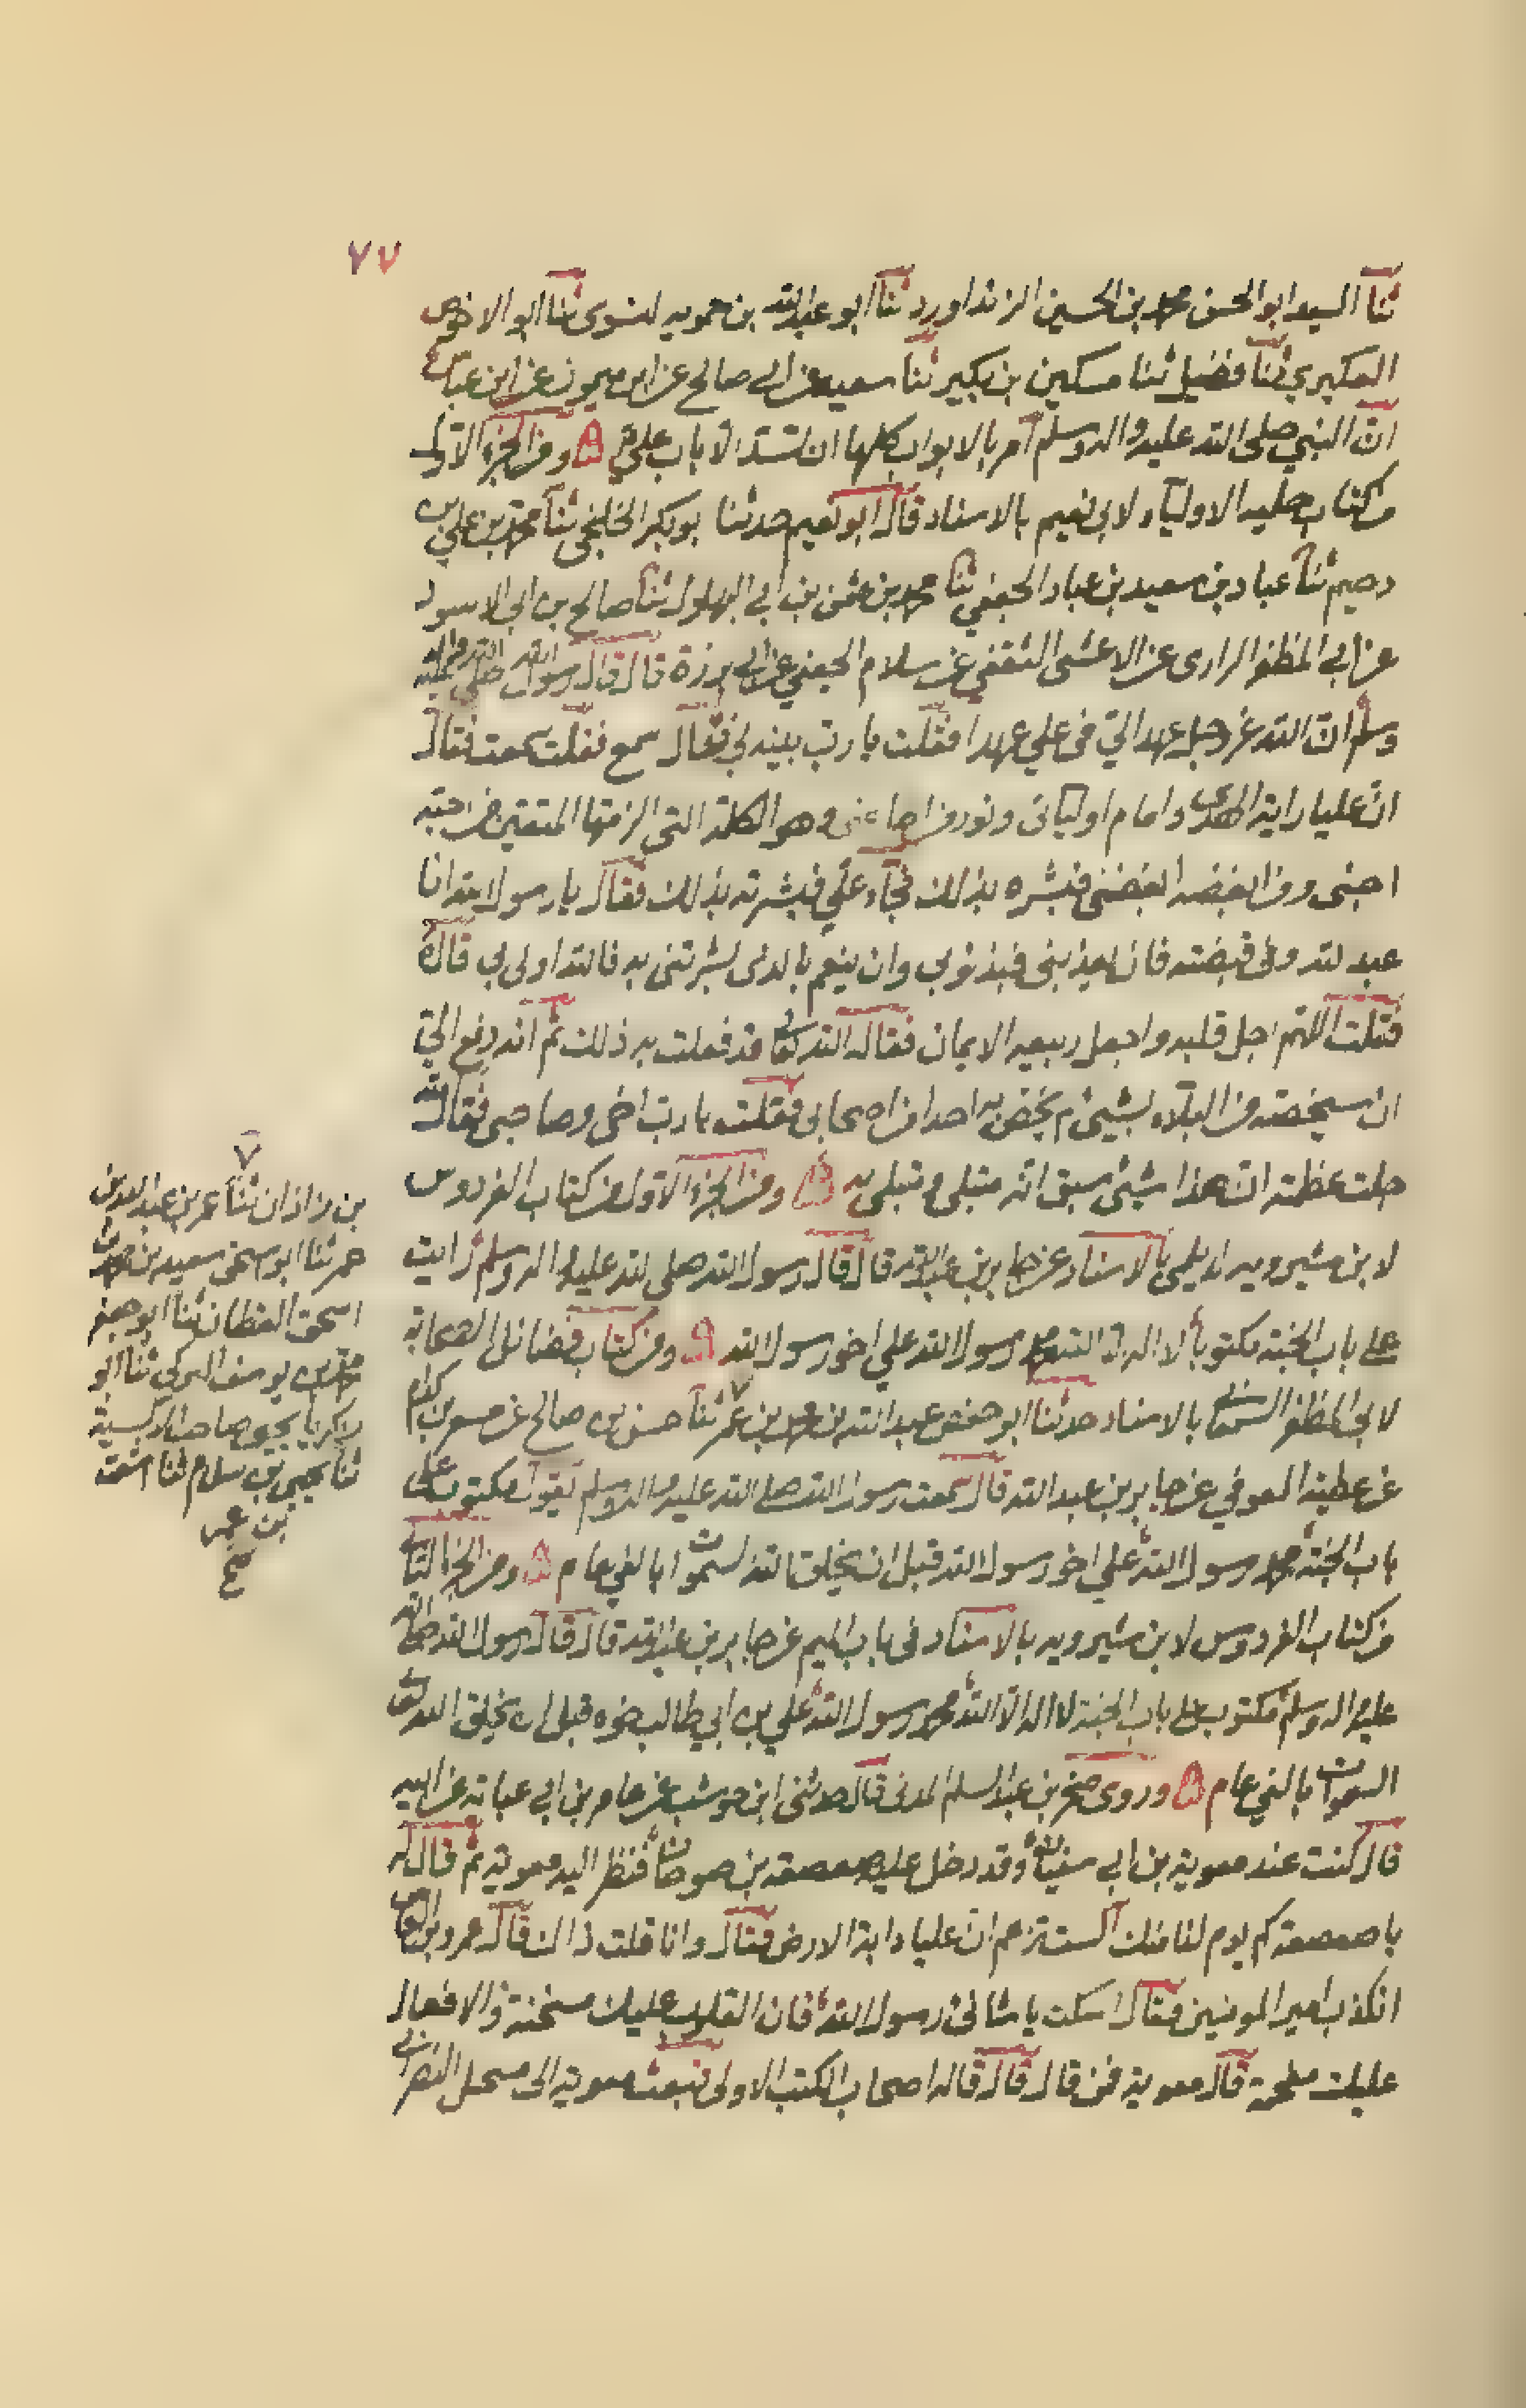 ٧٧
ثنا السيد ابو الحسن محمد بن الحسين ثنا ابو عبد الله بن حمويه ثنا ابو الاحوص
العكبري ثنا فضيل ثنا مسكين بن بكير ثنا سعيد عن ابي صالح عن ابن ميمون عن ابن عباس
ان النبي صلى الله عليه واله وسلم امر بالابواب كلها ان تسد الا باب علي ومن الجزء الاول
من كتاب حلية الاولياء لابي نعيم بالاسناد قال ابو نعيم حدثنا بو بكر الخلنجي ثنا محمد بن علي بن
دحيم ثنا عباد بن سعيد بن عباد الجعفي ثنا محمد بن عثمن بن ابي البهلول ثنا صالح بن ابي الاسود
عن ابي المظفر الرازى عن الاعشى الثقفي عن سلام الجعفي عن ابي برزة قال قال رسول الله صلى الله عليه واله
وسلم ان الله عز وجل عهد الي في علي عهدا فقلت يا رب بينه لي فقال سمع فقلت سمعت فقال
ان عليا راية الهدى وامام اوليائى ونور من اطاعنى وهو الكلمة التي الزمتها المتقين من احبه
احبنى ومن ابغضه ابغضنى فبشره بذلك فجاء علي فبشرته بذلك فقال يا رسول الله انا
عبد الله وفى قبضته فان يعذبنى فبذنوبى وان ينعم بالذى بشرتنى به فالله اولى بى قال
فقلت اللهم اجل قلبه واجعل ربيعه الايمان فقال الله تعالى قد فعلت به ذلك ثم انه رفع الي
ان سيخصه من البلاء بشيئ لم يخص به احدا من اصحابى فقلت يا رب اخى وصاحبى فقال الله
جلت عظمته ان هذا شيئ سبق انه مبتلى ومبتلى به ومن الجزء الاول من كتاب الفردوس
لابن شيرويه الديلمى بالاسناد عن جابر بن عبد الله قال قال رسول الله صلى الله عليه واله وسلم رايت
على باب الجنة مكتوبا لا اله الا الله محمد رسول الله علي اخو رسول الله ومن كتاب فضائل الصحابة
لابى المظفر السمعانى بالاسناد حدثنا ابو حفص عبد الله بن محمد بن عمر ثنا حسن بن صالح عن مسعر بن كدام
عن عطية العوفي عن جابر بن عبد الله قال سمعت رسول الله صلى الله عليه واله وسلم يقول مكتوب على
باب الجنة محمد رسول الله علي اخو رسول الله قبل ان يخلق الله السموات بالفي عام ومن الجزء الثانى
من كتاب الفردوس لابن شيرويه بالاسناد فى باب الميم عن جابر بن عبد الله قال قال رسول الله صلى الله
عليه واله وسلم مكتوب على باب الجنة لا اله الا الله محمد رسول الله علي بن ابي طالب خوه قبل ان يخلق الله تعالى
السموات بالفي عام وروى صخر بن عبد السلم المدنى قال حدثنى ابن حوشب عن عامر بن ابي عباية عن ابيه
قال كنت عند معوية بن ابي سفيان وقد دخل عليه صعصعة بن صوحان فنظر اليه معوية ثم قال له
يا صعصعة كم يوم لنا منك الست تزعم ان عليا دابة الارض فقال وانا قلت ذالك قال عمرو بن العاص
اتكذب امير المومنين فقال اسكت يا شانئ رسول الله فان
عليك قال معوية فمن قال قال قاله اصحاب الكتب الاولى فبعث معوية الى النصرانى
بن زاذان ثنا عمر بن عبد الله بن
عمر ثنا ابو اسحق سعيد بن محمد ثنا
اسحق القطان ثنا ابو جعفر
محمد بن يوسف ثنا ابو
زكريا يحيى
ثنا يحيى بن سالم ثنا اشعث
بن عم
صح